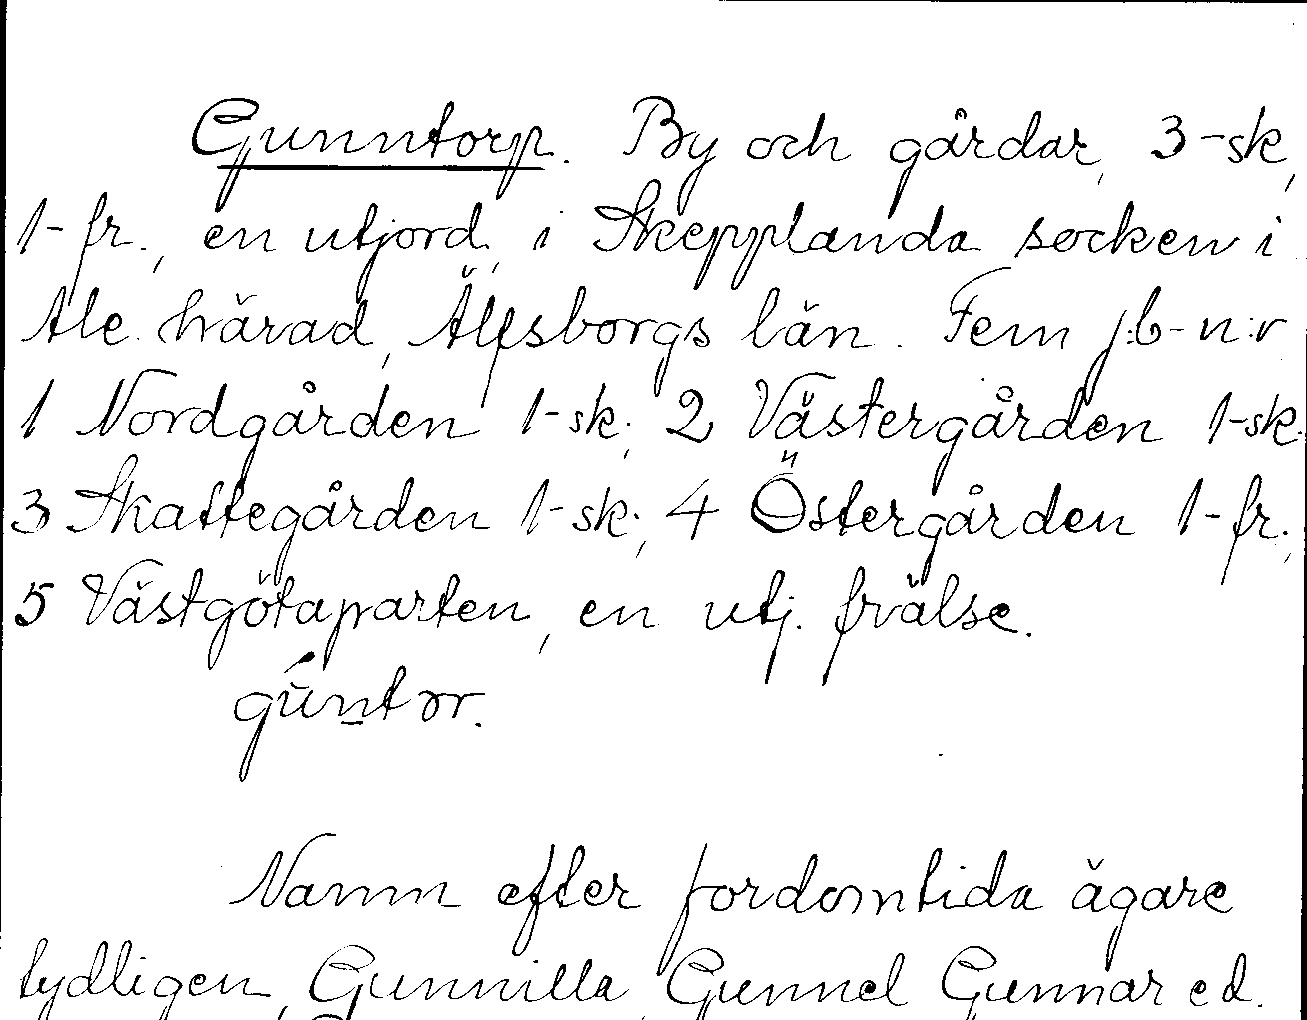 Gunntorp. By och gårdar, 3-sk,
1-fr., en utjord, i Skepplanda socken i
Ale härad, Älfsborgs län. Fem j:b-n:r
1 Nordgården 1-sk.; 2 Västergården 1-sk.
3 Skattegården 1-sk.; 4 Östergården 1-fr.;
5 Västgötaparten, en utj. frälse.
gúntor.
Namn efter fordomtida ägare
tydligen, Gunnilla, Gunnel Gunnar e d.